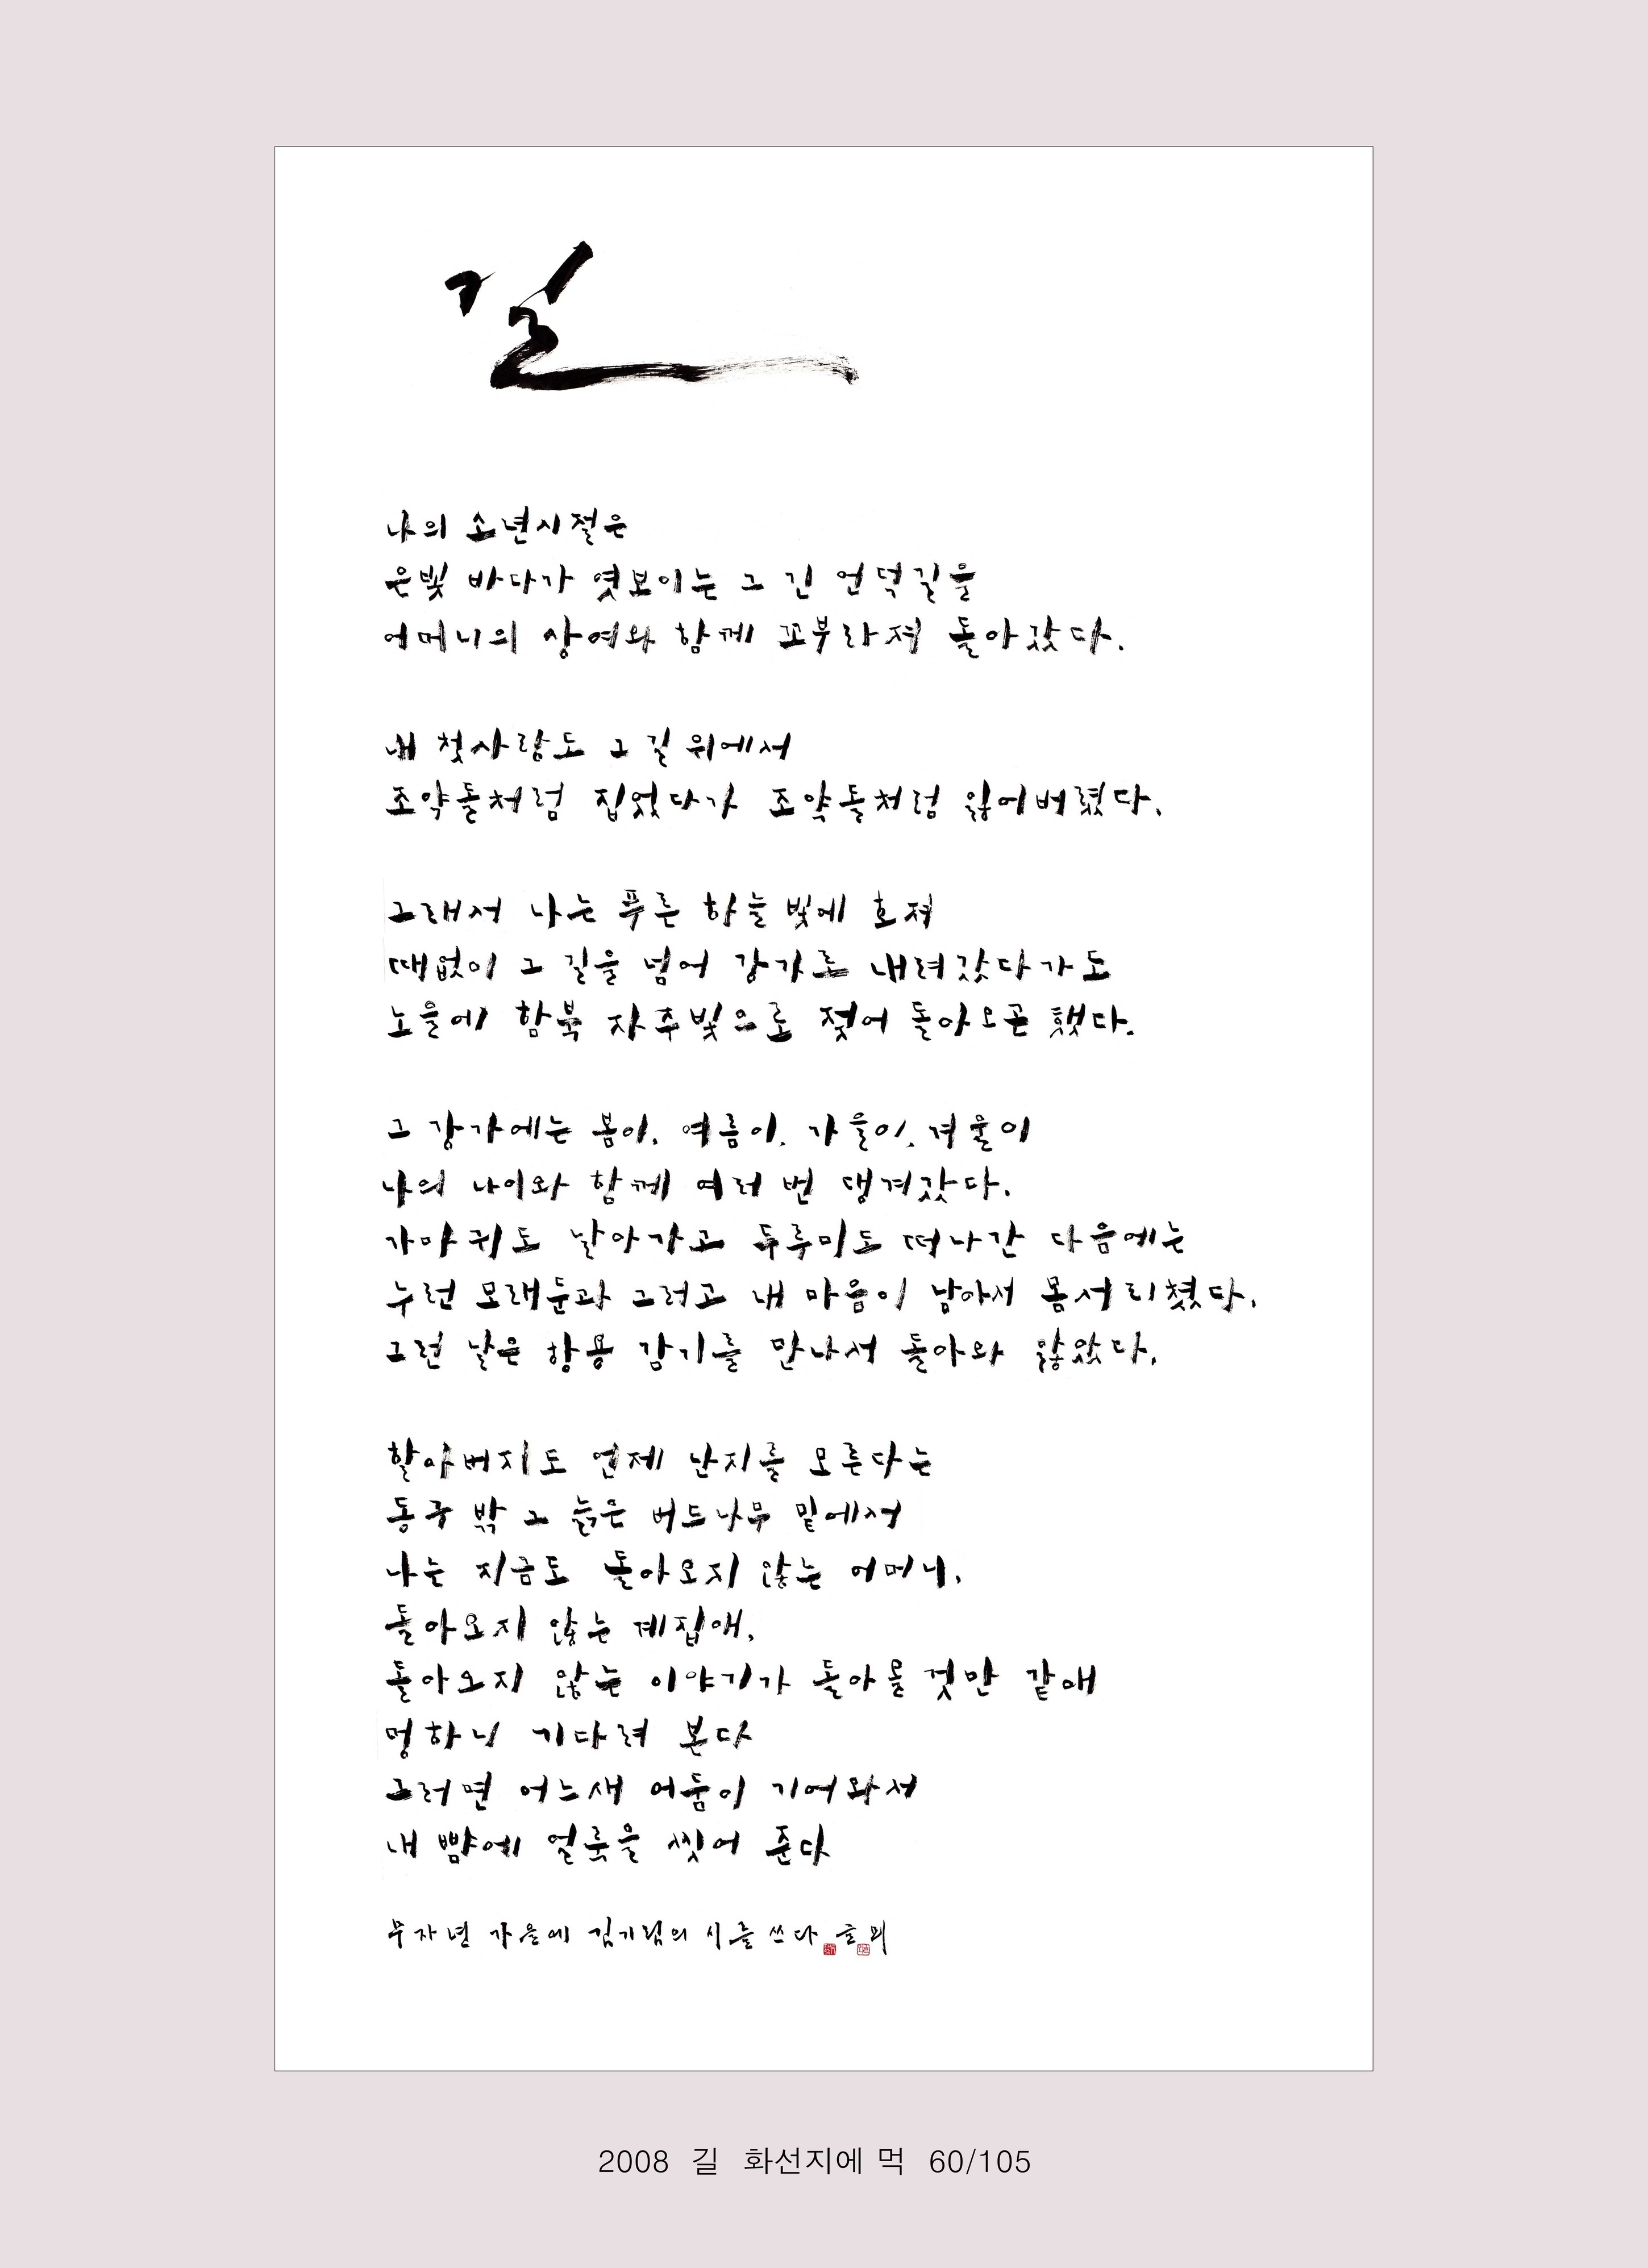 길
나의 소년시절은
은빛 바다가 엿보이는 그 긴 언덕길을
어머니의 상여와 함께 꼬부라져 돌아갔다.
내 첫사랑도 그 길 위에서
조약돌처럼 집었다가 조약돌처럼 잃어버렸다.
그래서 나는 푸른 하늘빛에 호져
때없이 그 길을 넘어 강가로 내려갔다가도
노을에 함북 자주빛으로 젖어 돌아오곤 했다.
그 강가에는 봄이, 여름이, 가을이, 겨울이
나의 나이와 함께 여러 번 댕겨갔다.
가마귀도 날아가고 두루미도 떠나간 다음에는
누런 모래둔과 그러고 내 마음이 남아서 몸서리쳤다.
그런 날은 항용 감기를 만나서 돌아와 앓았다.
할아버지도 언제 난지를 모른다는
동구 밖 그 늙은 버드나무 밑에서
나는 지금도 돌아오지 않는 어머니,
돌아오지 않는 계집애,
돌아오지 않는 이야기가 돌아올 것만 같애
멍하니 기다려 본다
그러면 어느새 어둠이 기어와서
내 뺨에 얼룩을 씻어 준다
무자년 가을에 김기림의 시를 쓰다 글뫼
2008 길 화선지에 먹 60/105